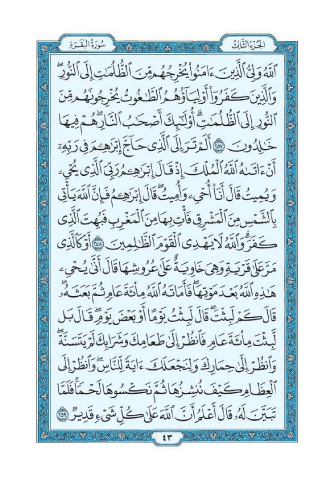 الجزء الثالث
سورة البقرة
ٱللَّهُ وَلِيُّ ٱلَّذِينَ ءَامَنُوا۟ يُخْرِجُهُم مِّنَ ٱلظُّلُمَٰتِ إِلَى ٱلنُّورِ ۖ
وَٱلَّذِينَ كَفَرُوٓا۟ أَوْلِيَآؤُهُمُ ٱلطَّٰغُوتُ يُخْرِجُونَهُم مِّنَ
ٱلنُّورِ إِلَى ٱلظُّلُمَٰتِ ۗ أُو۟لَٰٓئِكَ أَصْحَٰبُ ٱلنَّارِ ۖ هُمْ فِيهَا
خَٰلِدُونَ ٢٥٧ أَلَمْ تَرَ إِلَى ٱلَّذِى حَآجَّ إِبْرَٰهِـۧمَ فِى رَبِّهِۦٓ
أَنْ ءَاتَىٰهُ ٱللَّهُ ٱلْمُلْكَ إِذْ قَالَ إِبْرَٰهِـۧمُ رَبِّىَ ٱلَّذِى يُحْىِۦ
وَيُمِيتُ قَالَ أَنَا۠ أُحْىِۦ وَأُمِيتُ ۖ قَالَ إِبْرَٰهِـۧمُ فَإِنَّ ٱللَّهَ يَأْتِى
بِٱلشَّمْسِ مِنَ ٱلْمَشْرِقِ فَأْتِ بِهَا مِنَ ٱلْمَغْرِبِ فَبُهِتَ ٱلَّذِى
كَفَرَ ۗ وَٱللَّهُ لَا يَهْدِى ٱلْقَوْمَ ٱلظَّٰلِمِينَ ٢٥٨ أَوْ كَٱلَّذِى
مَرَّ عَلَىٰ قَرْيَةٍ وَهِىَ خَاوِيَةٌ عَلَىٰ عُرُوشِهَا قَالَ أَنَّىٰ يُحْىِۦ
هَٰذِهِ ٱللَّهُ بَعْدَ مَوْتِهَا ۖ فَأَمَاتَهُ ٱللَّهُ مِا۟ئَةَ عَامٍ ثُمَّ بَعَثَهُۥ ۖ
قَالَ كَمْ لَبِثْتَ ۖ قَالَ لَبِثْتُ يَوْمًا أَوْ بَعْضَ يَوْمٍ ۖ قَالَ بَل
لَّبِثْتَ مِا۟ئَةَ عَامٍ فَٱنظُرْ إِلَىٰ طَعَامِكَ وَشَرَابِكَ لَمْ يَتَسَنَّهْ ۖ
وَٱنظُرْ إِلَىٰ حِمَارِكَ وَلِنَجْعَلَكَ ءَايَةً لِّلنَّاسِ ۖ وَٱنظُرْ إِلَى
ٱلْعِظَامِ كَيْفَ نُنشِزُهَا ثُمَّ نَكْسُوهَا لَحْمًا ۚ فَلَمَّا
تَبَيَّنَ لَهُۥ قَالَ أَعْلَمُ أَنَّ ٱللَّهَ عَلَىٰ كُلِّ شَىْءٍ قَدِيرٌ ٢٥٩
٤٣